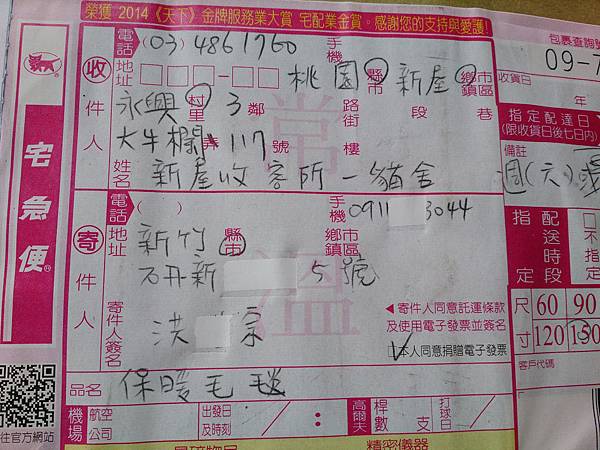 榮獲 2014《天下》金牌服務業大賞 宅配業金賞。感謝您的支持與愛護!
包裹查詢號
宅急便
收件人
電話 (03) 4861760 手機
地址 □□□-□□ 桃園 縣市 新屋 鄉鎮 市區
永興 村里 3 鄰 路街 段 巷
大牛欄 弄 117 號 樓
姓名 新屋收容所－貓舍
常溫
寄件人
電話 ( ) 手機 0911 3044
地址 新竹 縣市 鄉鎮 市區
5 號
寄件人簽名 洪
◀寄件人同意託運條款及使用電子發票並簽名
□本人同意捐贈電子發票
品名 保暖毛毯
機場 航空公司 出發日及時刻 / : 高爾夫 桿數 支 打球日 /
精密儀器
收貨日 09-7
年
指定配達日
(限收貨日後七日內)
備註
週(六)
指定 配送時段 □不指定
尺寸 60 90
120 150
客戶代碼
往官方網站